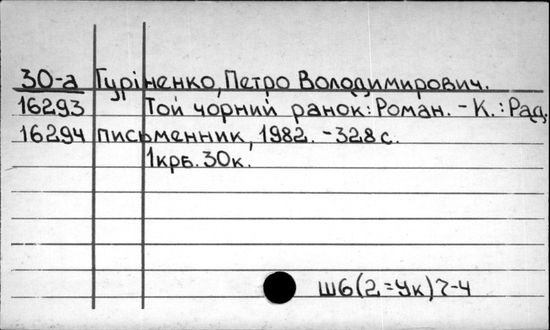 30-а Гуріненко, Петро Володимирович.
16293 Той чорний ранок: Роман. - К.: Рад.
16294 письменник, 1982. - 328 с.
1крб. 30к.
Ш6(2=Ук)7-4